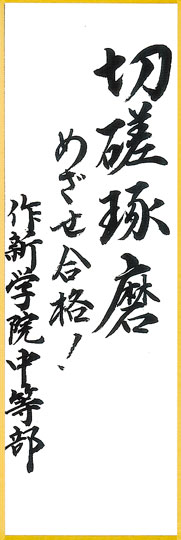 切磋琢磨
めざせ合格!
作新学院中等部